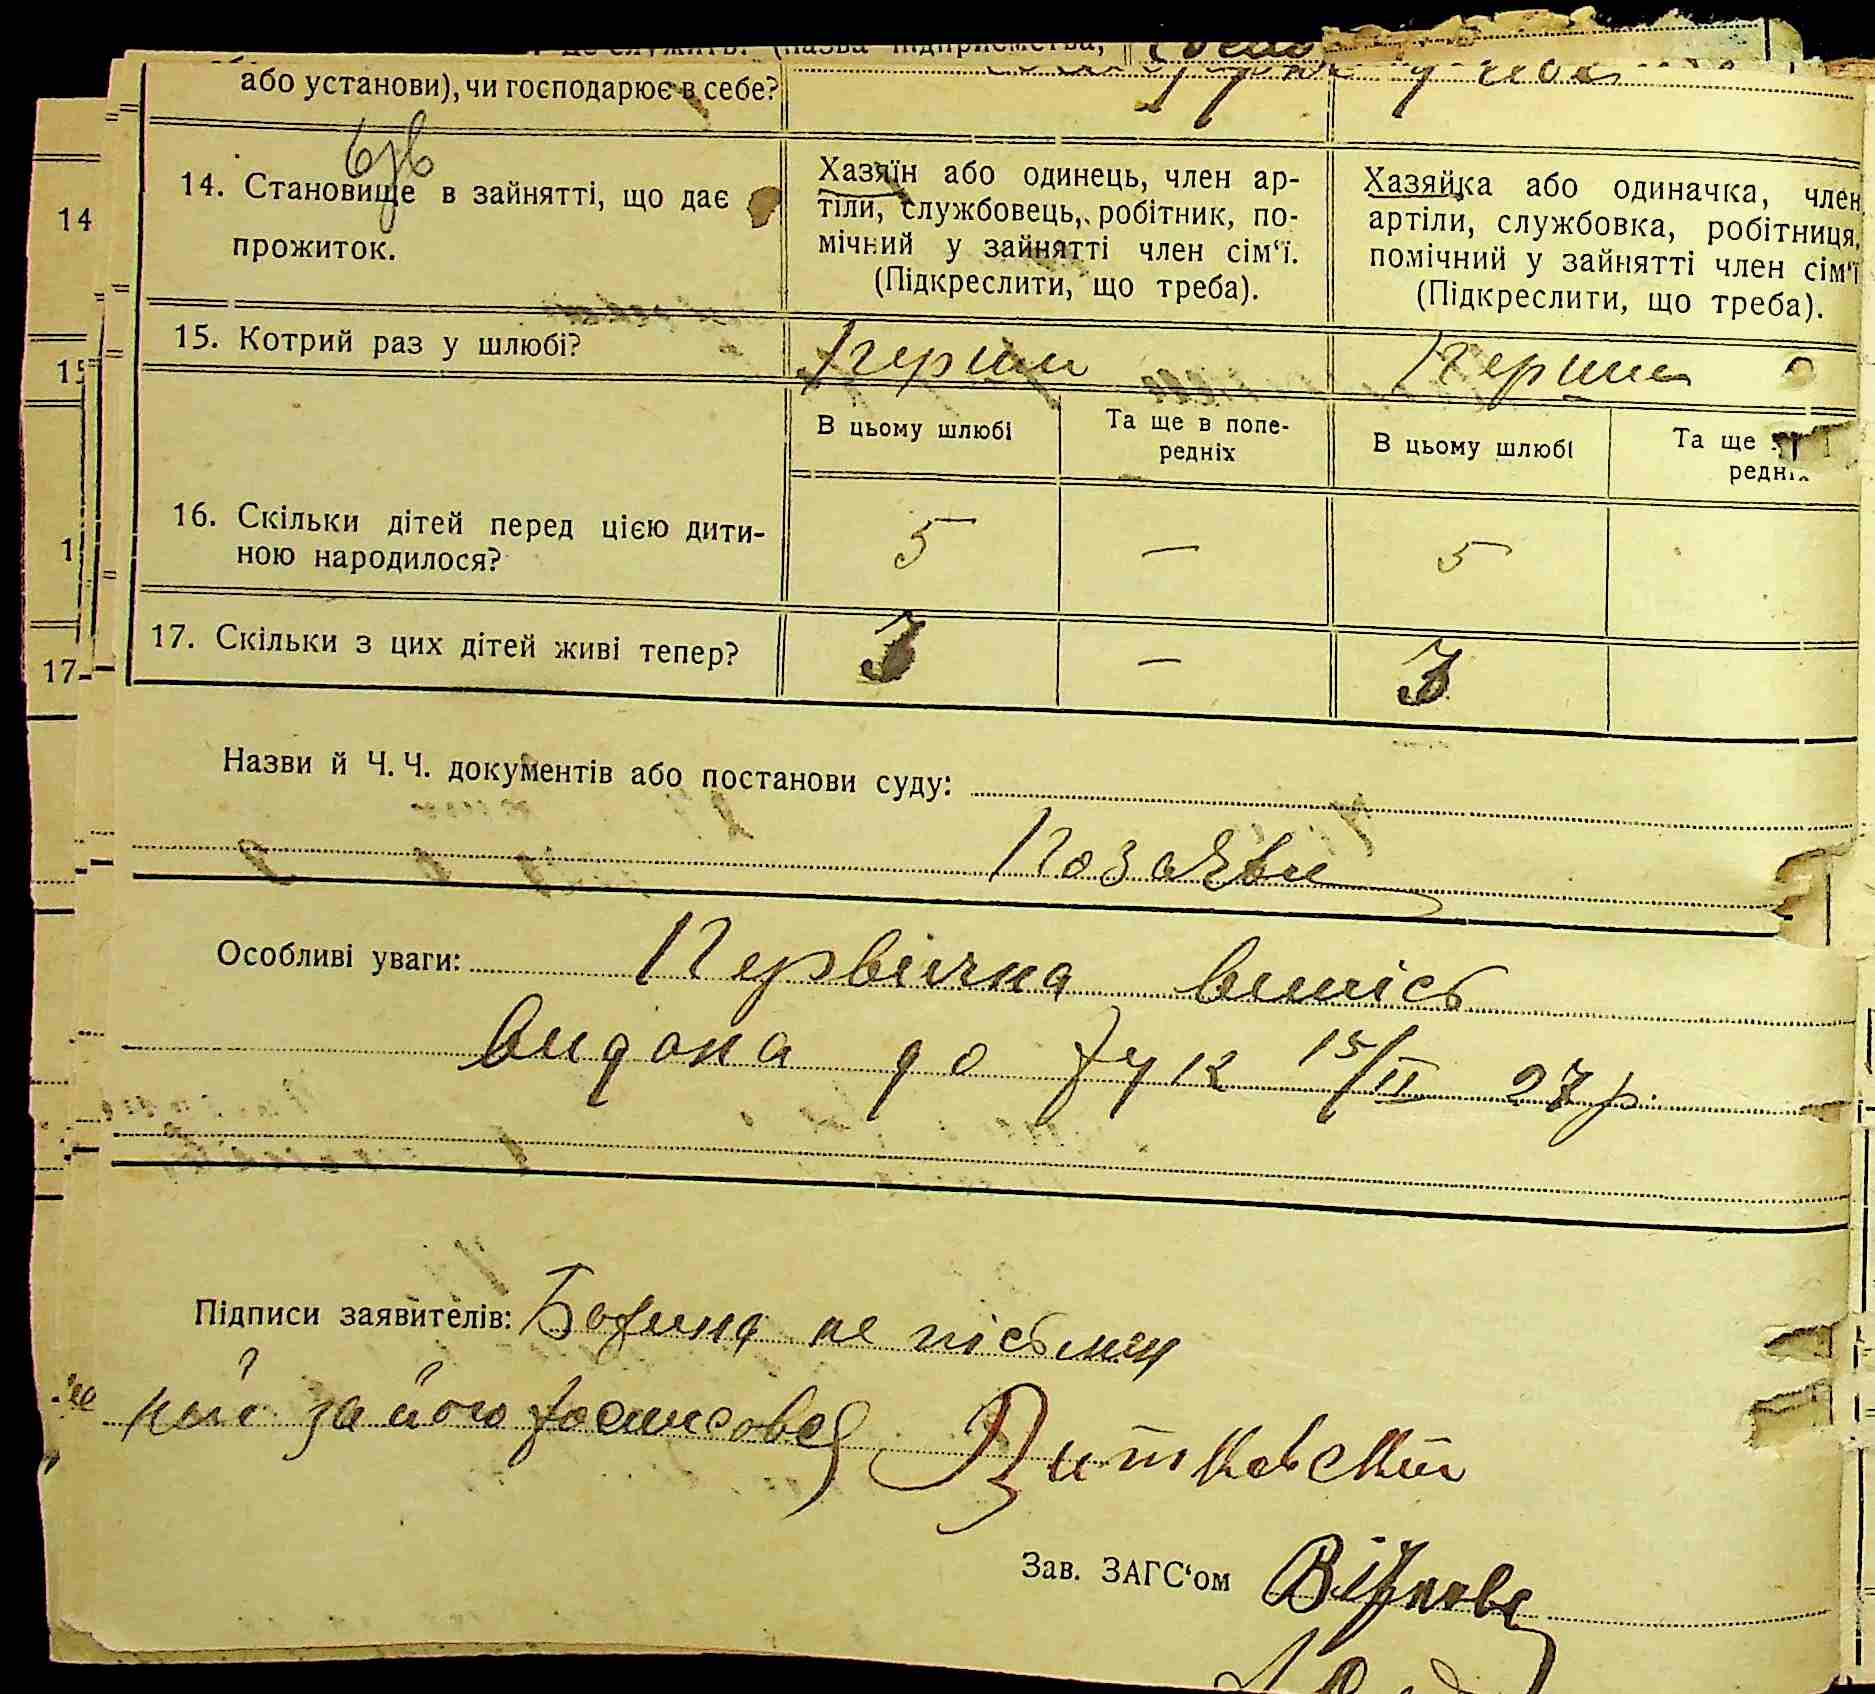 (назва підприємства,
або установи), чи господарює в себе?
14. Становище в зайнятті, що дає
прожиток.
Хазяїн або одинець, член ар-
тіли, службовець, робітник, по-
мічний у зайнятті член сім'ї.
(Підкреслити, що треба).
Хазяйка або одиначка, член
артіли, службовка, робітниця,
помічний у зайнятті член сім'ї
(Підкреслити, що треба).
14
15. Котрий раз у шлюбі?
Перши
Перши
15
В цьому шлюбі
Та ще в попе-
редніх
В цьому шлюбі
Та ще
редніх
16. Скільки дітей перед цією дити-
ною народилося?
5 — 5
1
17. Скільки з цих дітей живі тепер?
3 — 3
17
Назви й Ч. Ч. документів або постанови суду:
По заяви
Особливі уваги: Первічна випісь
видана до рук 15/II 27 р.
Підписи заявителів: не пісьмен
ний за його росписався Витковский
Зав. ЗАГС'ом